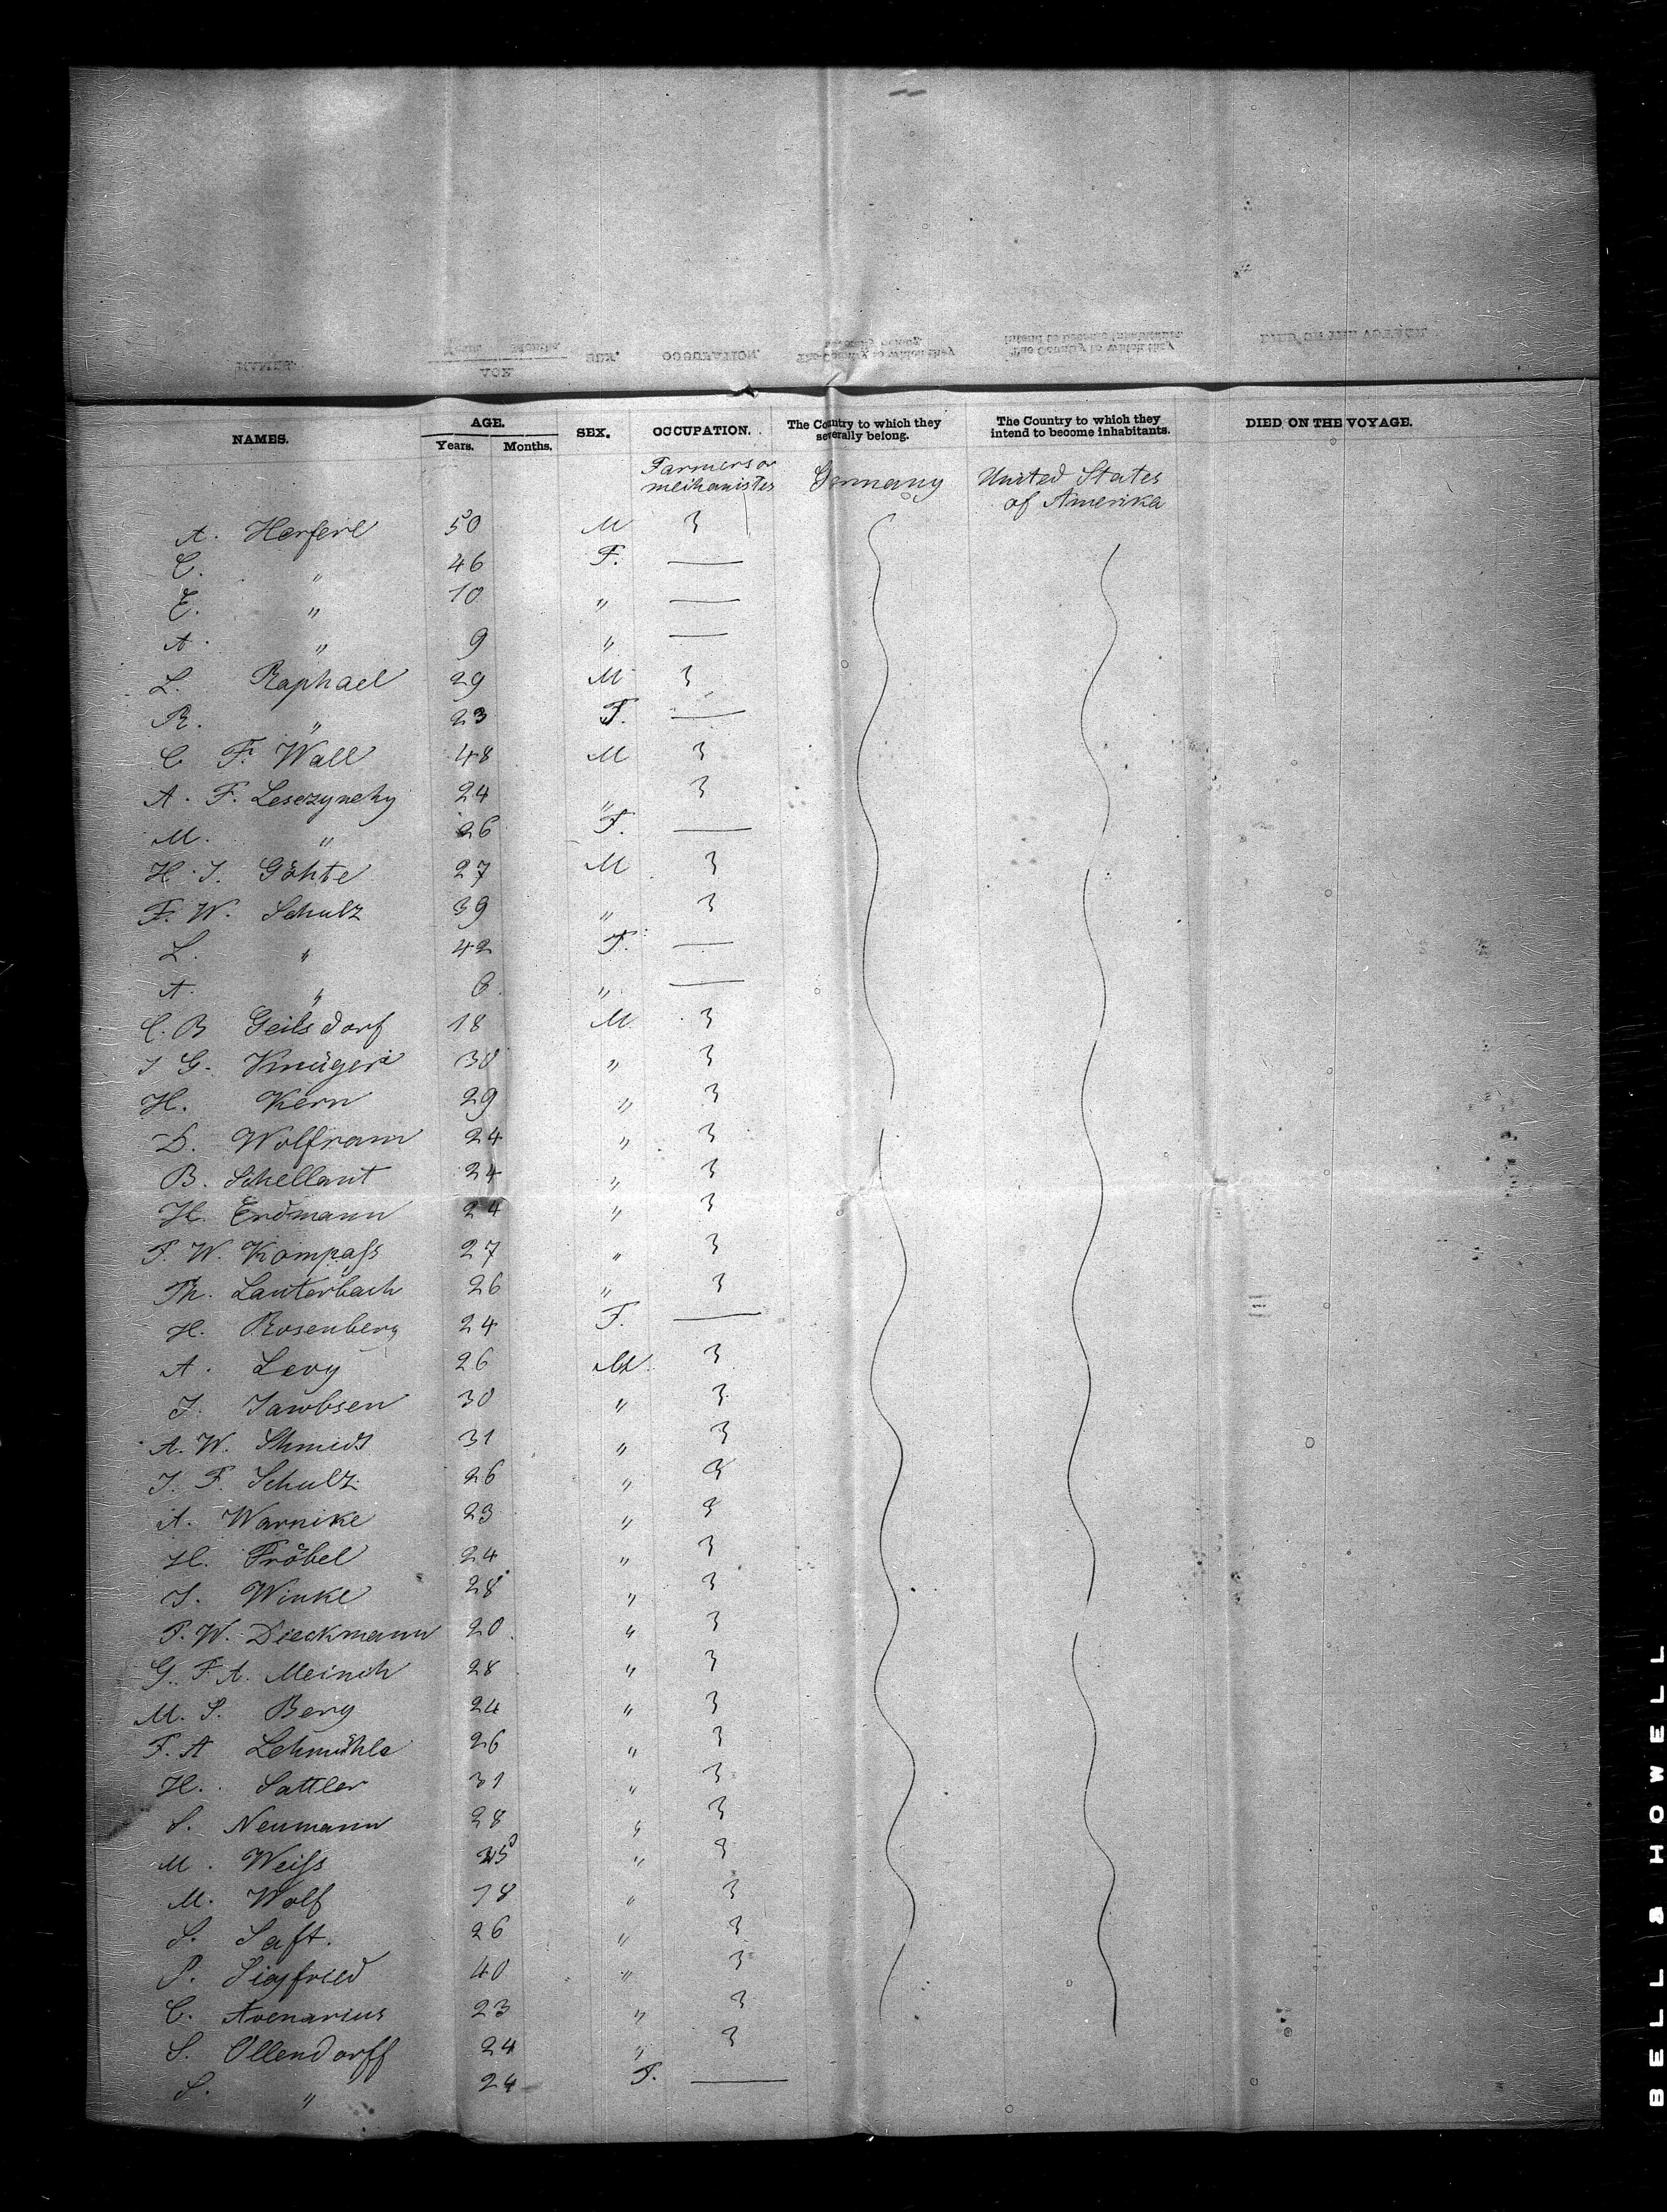 NAMES. AGE. SEX. OCCUPATION. The Country to which they severally belong. The Country to which they intend to become inhabitants. DIED ON THE VOYAGE.
Years. Months.
Farmers or Germany United States
meihanistes of Amerika
A. Herferl 50 M 3
C. " 46 F. —
E. " 10 " —
A. " 9 " —
L. Raphael 29 M 3
R. " 23 F. —
C F. Wall 48 M 3
A. F. Lesczynsky 24 " 3
M. " 26 F. —
H. I. Göhte 27 M 3
F. W. Schulz 39 " 3
L. " 42 F. —
A. " 6 " —
C. B Geilsdorf 18 M. 3
I G. 38 " 3
H. Kern 29 " 3
D. Wolfram 24 " 3
B. Schellant 24 " 3
H. Erdmann 24 " 3
F. W. Kompaſs 27 " 3
Th. Lauterbach 26 " 3
H. Rosenberg 24 F. —
A. Levy 26 M. 3
I. Jacobsen 30 " 3
A. W. Shmidt 31 " 3
I. F. Schulz 26 " 3
A. Warnike 23 " 3
H. Fröbel 24 " 3
I. Winke 28 " 3
F. W. Dieckmann 20 " 3
G. F. A. Meinih 28 " 3
M. S. Berg 24 " 3
F. A Lehmühle 26 " 3
H. Sattler 31 " 3
S. Neumann 28 " 3
M. Weiſs " 3
M. Wolf 18 " 3
S. Saft. 26 " 3
P. Siegfried 40 " 3
C. Avenarius 23 " 3
S. Ollendorff 24 " 3
S. " 24 F. —
BELL & HOWELL